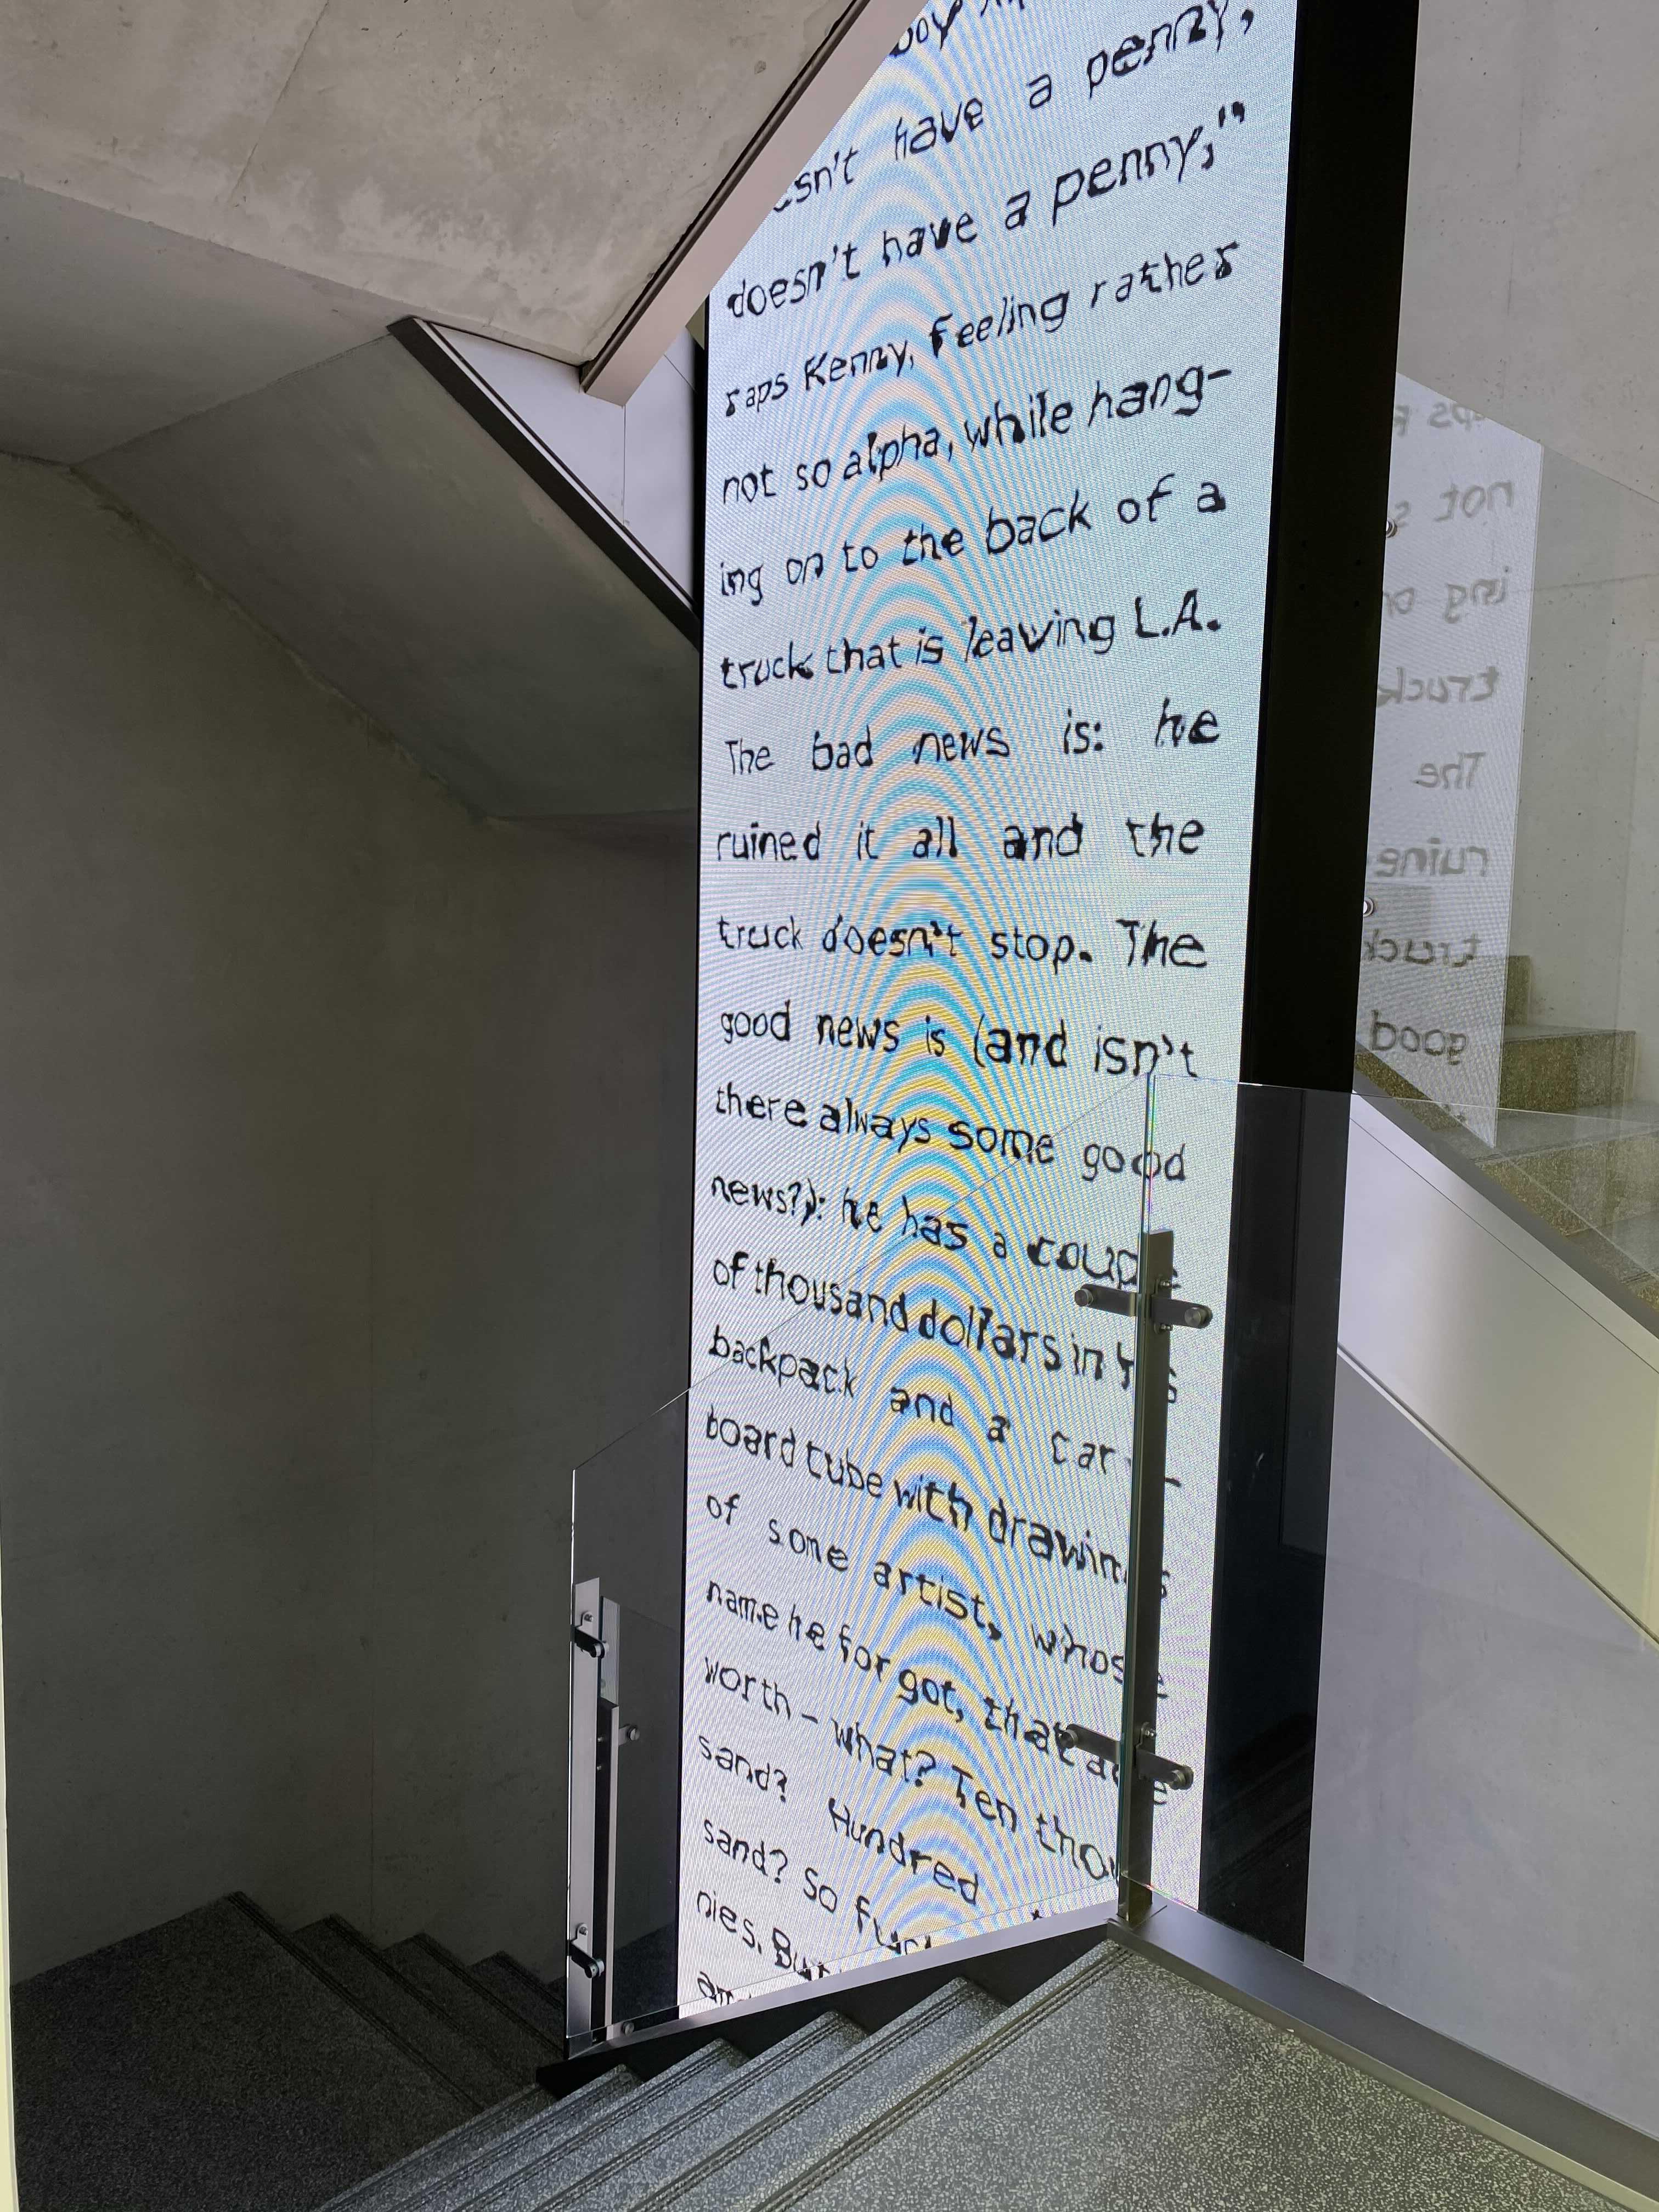 have a penny,
doesn't have a penny,"
raps Kenny, feeling rather
not so alpha, while hang-
ing on to the back of a
truck that is leaving L.A.
The bad news is: he
ruined it all and the
truck doesn't stop. The
good news is (and isn't
there always some good
news?): he has a couple
of thousand dollars in his
backpack and a car -
board tube with drawings
of some artist, whose
name he forgot, that are
worth - what? Ten thou
sand? Hundred
sand? So
nies. But
not
ing
truck
The
truck
good